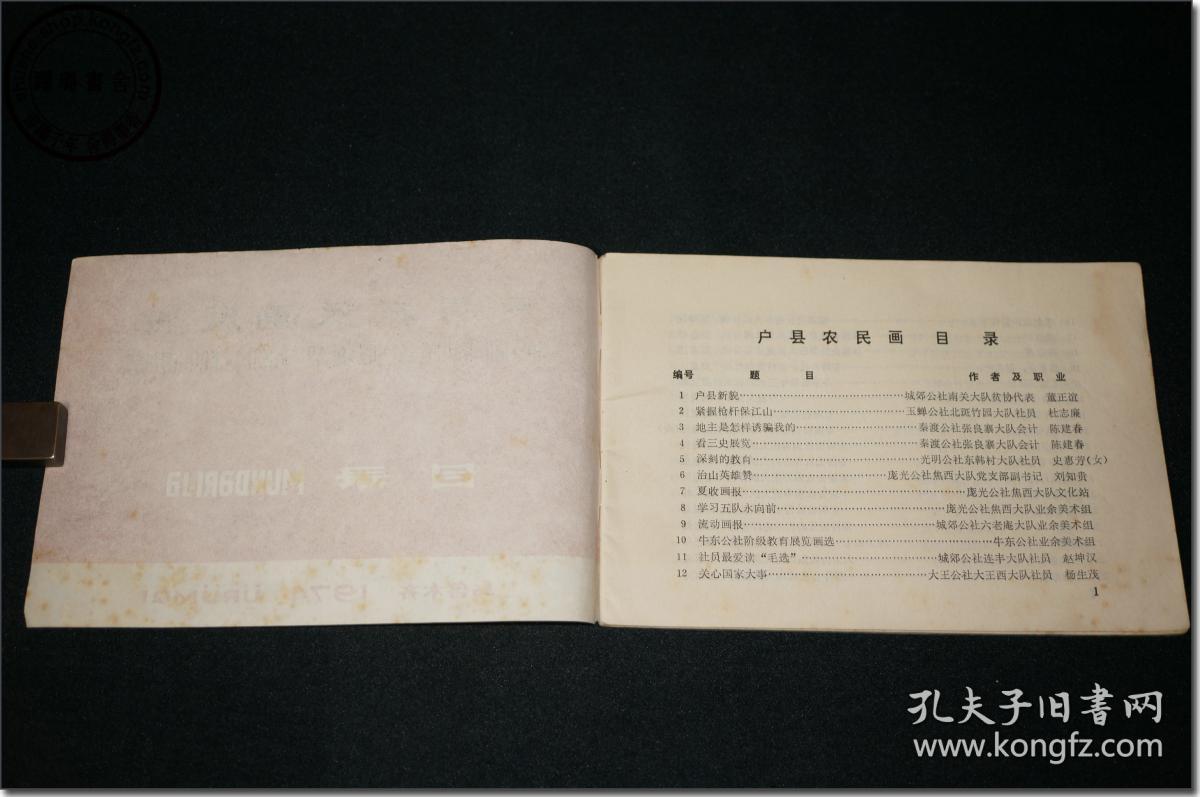 户县农民画 目录
编号 题目 作者及职业
1 户县新貌……城郊公社南关大队贫协代表 董正谊
2 紧握枪杆保江山……玉蝉公社北斑竹园大队社员 杜志廉
3 地主是怎样诱骗我的……秦渡公社张良寨大队会计 陈建春
4 看三史展览……秦渡公社张良寨大队会计 陈建春
5 深刻的教育……光明公社东韩村大队社员 史惠芳(女)
6 治山英雄赞……庞光公社焦西大队党支部副书记 刘知贵
7 夏收画报……庞光公社焦西大队文化站
8 学习五队永向前……庞光公社焦西大队业余美术组
9 流动画报……城郊公社六老庵大队业余美术组
10 牛东公社阶级教育展览画选……牛东公社业余美术组
11 社员最爱读“毛选”……城郊公社连丰大队社员 赵坤汉
12 关心国家大事……大王公社大王西大队社员 杨生茂
1
MUNDARIJA
1974 URUMQI
孔夫子旧书网
www.kongfz.com